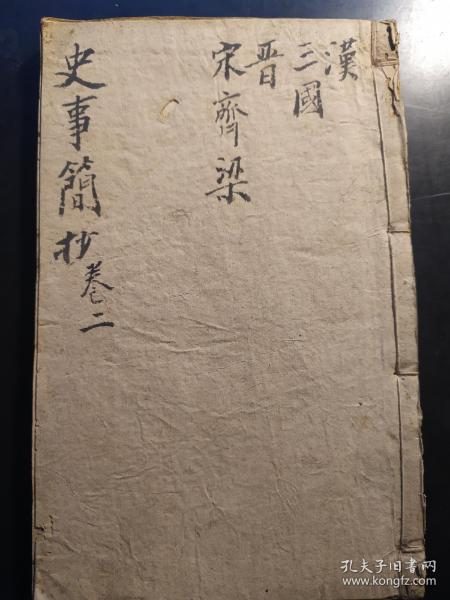 漢
三國
晋
宋齊梁
史事簡抄卷二
孔夫子旧书网
www.kongfz.com